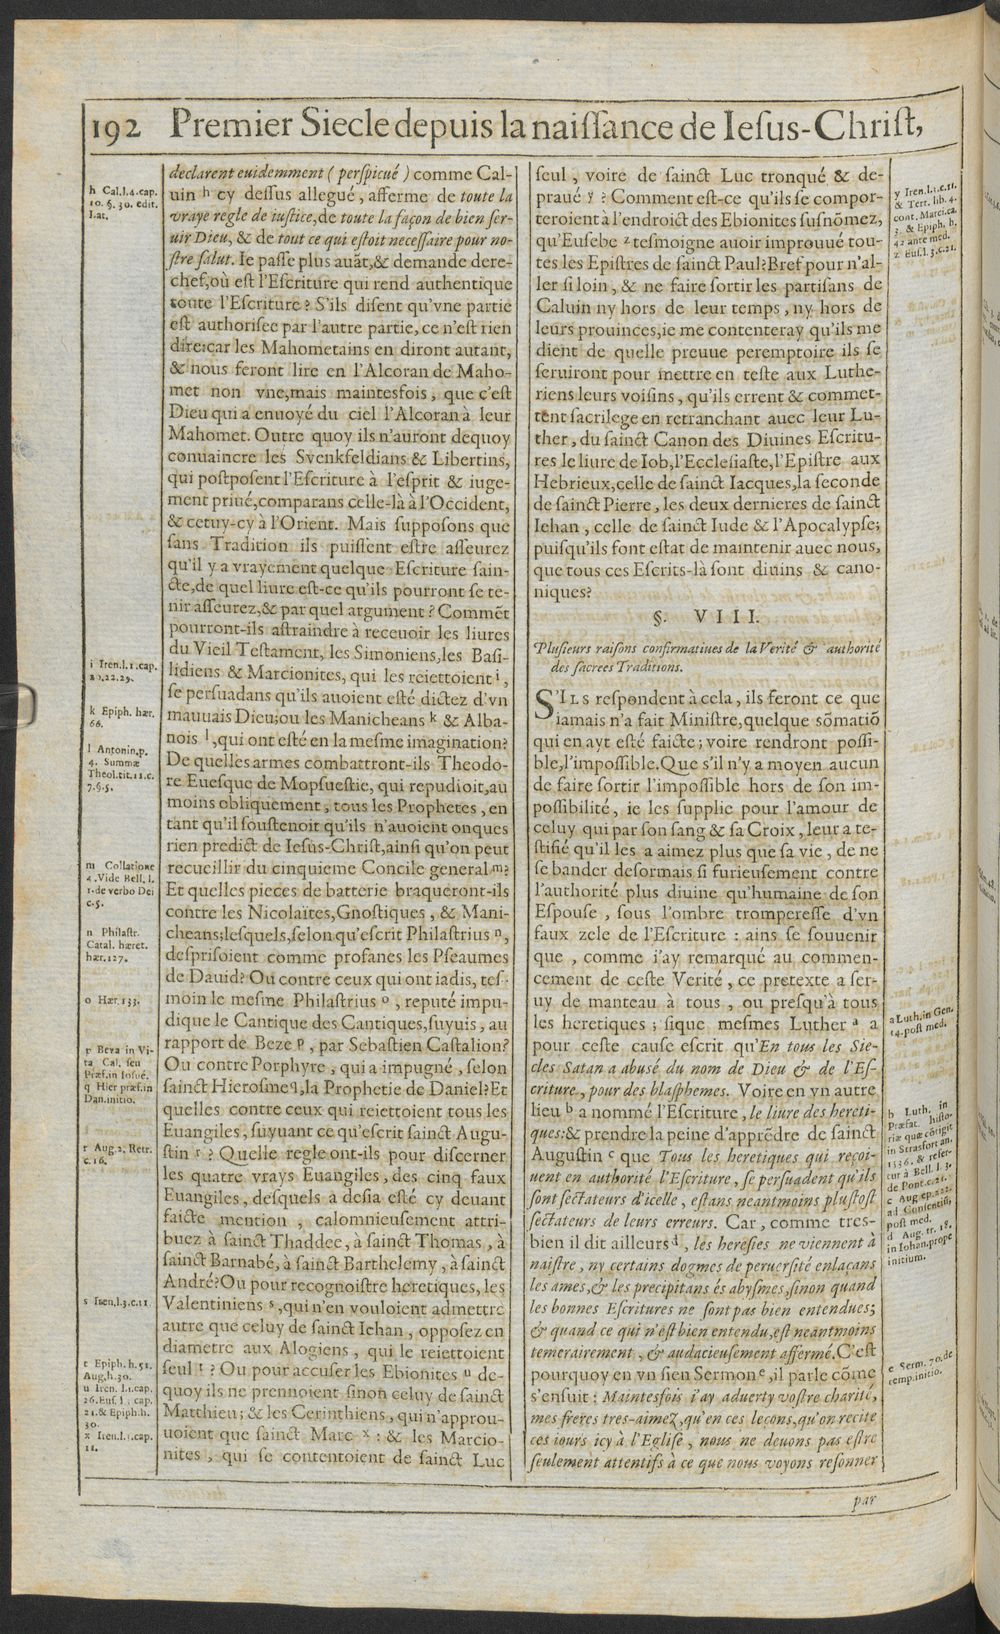 192 Premier Siecle depuis la naiſſance de Ieſus-Chriſt,
declarent euidemment (perſpicué) comme Cal-
uin h cy deſſus allegué, afferme de toute la
vraye regle de iuſtice, de toute la façon de bien ſer-
uir Dieu, & de tout ce qui eſtoit neceſſaire pour no-
ſtre ſalut. Ie paſſe plus auãt, & demande dere-
chef, où eſt l'Eſcriture qui rend authentique
toute l'Eſcriture? S'ils diſent qu'vne partie
eſt authoriſee par l'autre partie, ce n'eſt rien
dire: car les Mahometains en diront autant,
& nous feront lire en l'Alcoran de Maho-
met non vne, mais maintesfois, que c'eſt
Dieu qui a enuoyé du ciel l'Alcoran à leur
Mahomet. Outre quoy ils n'auront dequoy
conuaincre les Svenkfeldians & Libertins,
qui poſtpoſent l'Eſcriture à l'eſprit & iuge-
ment priué, comparans celle-là à l'Occident,
& cetuy-cy à l'Orient. Mais ſuppoſons que
ſans Tradition ils puiſſent eſtre aſſeurez
qu'il y a vrayement quelque Eſcriture ſain-
cte, de quel liure eſt-ce qu'ils pourront ſe te-
nir aſſeurez, & par quel argument? Commẽt
pourront-ils aſtraindre à receuoir les liures
du Vieil Teſtament, les Simoniens, les Baſi-
lidiens & Marcionites, qui les reiettoient i,
ſe perſuadans qu'ils auoient eſté dictez d'vn
mauuais Dieu; ou les Manicheans k & Alba-
nois l, qui ont eſté en la meſme imagination?
De quelles armes combattront-ils Theodo-
re Eueſque de Mopſueſtie, qui repudioit, au
moins obliquement, tous les Prophetes, en
tant qu'il ſouſtenoit qu'ils n'auoient onques
rien predict de Ieſus-Chriſt, ainſi qu'on peut
recueillir du cinquieme Concile general m?
Et quelles pieces de batterie braqueront-ils
contre les Nicolaïtes, Gnoſtiques, & Mani-
cheans; leſquels, ſelon qu'eſcrit Philaſtrius n,
deſpriſoient comme profanes les Pſeaumes
de Dauid? Ou contre ceux qui ont iadis, teſ-
moin le meſme Philaſtrius o, reputé impu-
dique le Cantique des Cantiques, ſuyuis, au
rapport de Beze p, par Sebaſtien Caſtalion?
Ou contre Porphyre, qui a impugné, ſelon
ſainct Hieroſme q, la Prophetie de Daniel? Et
quelles contre ceux qui reiettoient tous les
Euangiles, ſuyuant ce qu'eſcrit ſainct Augu-
ſtin r? Quelle regle ont-ils pour diſcerner
les quatre vrays Euangiles, des cinq faux
Euangiles, deſquels a deſia eſté cy deuant
faicte mention, calomnieuſement attri-
buez à ſainct Thaddee, à ſainct Thomas, à
ſainct Barnabé, à ſainct Barthelemy, à ſainct
André? Ou pour recognoiſtre heretiques, les
Valentiniens s, qui n'en vouloient admettre
autre que celuy de ſainct Iehan, oppoſez en
diametre aux Alogiens, qui le reiettoient
ſeul t? Ou pour accuſer les Ebionites u de-
quoy ils ne prennoient ſinon celuy de ſainct
Matthieu; & les Cerinthiens, qui n'approu-
uoient que ſainct Marc x: & les Marcio-
nites, qui ſe contentoient de ſainct Luc
h Cal.l.4.cap.
10. §. 30. edit.
Lat.
i Iren.l.1.cap.
k Epiph. hær.
66.
l Antonin.p.
4. Summæ
Theol.tit.11.c.
7.§.5.
m Collatione
4.Vide Bell. l.
1.de verbo Dei
c.5.
n Philaſtr.
Catal. hæret.
hær.127.
o Hær.133.
p Beza in Vi-
ta Cal. ſeu
Præf.in Ioſué.
q Hier præf.in
Dan.initio.
r Aug.2. Retr.
c.16.
s Iren.l.3.c.11
t Epiph. h.51.
Aug.h.30.
u Iren. l.1.cap.
26.Euſ.l 3 cap.
21.& Epiph.h.
30.
x Iren.l.1.cap.
11.
ſeul, voire de ſainct Luc tronqué & de-
praué y? Comment eſt-ce qu'ils ſe compor-
teroient à l'endroict des Ebionites ſuſnõmez,
qu'Euſebe z teſmoigne auoir improuué tou-
tes les Epiſtres de ſainct Paul? Bref pour n'al-
ler ſi loin, & ne faire ſortir les partiſans de
Caluin ny hors de leur temps, ny hors de
leurs prouinces, ie me contenteray qu'ils me
dient de quelle preuue peremptoire ils ſe
ſeruiront pour mettre en teſte aux Luthe-
riens leurs voiſins, qu'ils errent & commet-
tent ſacrilege en retranchant auec leur Lu-
ther, du ſainct Canon des Diuines Eſcritu-
res le liure de Iob, l'Eccleſiaſte, l'Epiſtre aux
Hebrieux, celle de ſainct Iacques, la ſeconde
de ſainct Pierre, les deux dernieres de ſainct
Iehan, celle de ſainct Iude & l'Apocalypſe;
puiſqu'ils font eſtat de maintenir auec nous,
que tous ces Eſcrits-là ſont diuins & cano-
niques?
§. VIII.
Pluſieurs raiſons confirmatiues de la Verité & authorité
des ſacrees Traditions.
S'ILS reſpondent à cela, ils feront ce que
iamais n'a fait Miniſtre, quelque sõmatiõ
qui en ayt eſté faicte; voire rendront poſſi-
ble, l'impoſſible. Que s'il n'y a moyen aucun
de faire ſortir l'impoſſible hors de ſon im-
poſſibilité, ie les ſupplie pour l'amour de
celuy qui par ſon ſang & ſa Croix, leur a te-
ſtifié qu'il les a aimez plus que ſa vie, de ne
ſe bander deſormais ſi furieuſement contre
l'authorité plus diuine qu'humaine de ſon
Eſpouſe, ſous l'ombre tromperesſe d'vn
faux zele de l'Eſcriture: ains ſe ſouuenir
que, comme i'ay remarqué au commen-
cement de ceſte Verité, ce pretexte a ſer-
uy de manteau à tous, ou preſqu'à tous
les heretiques; ſique meſmes Luther a a
pour ceſte cauſe eſcrit qu'En tous les Sie-
cles Satan a abusé du nom de Dieu & de l'Eſ-
criture, pour des blaſphemes. Voire en vn autre
lieu b a nommé l'Eſcriture, le liure des hereti-
ques: & prendre la peine d'apprẽdre de ſainct
Auguſtin c que Tous les heretiques qui reçoi-
uent en authorité l'Eſcriture, ſe perſuadent qu'ils
ſont ſectateurs d'icelle, eſtans neantmoins pluſtoſt
ſectateurs de leurs erreurs. Car, comme tres-
bien il dit ailleurs d, les hereſies ne viennent à
naiſtre, ny certains dogmes de peruerſité enlaçans
les ames, & les precipitans és abyſmes, ſinon quand
les bonnes Eſcritures ne ſont pas bien entendues;
& quand ce qui n'eſt bien entendu, eſt neantmoins
temerairement, & audacieuſement affermé. C'eſt
pourquoy en vn ſien Sermon e, il parle cõme
s'enſuit: Maintesfois i'ay aduerty voſtre charité,
mes freres tres-aimez, qu'en ces leçons, qu'on recite
ces iours icy à l'Egliſe, nous ne deuons pas eſtre
ſeulement attentifs à ce que nous voyons reſonner
par
y Iren.l.1.c.11.
& Tert. lib. 4.
cont. Marci.ca.
3. & Epiph. h.
42 ante med.
z Euſ.l.3.c.21.
a Luth.in Gen.
14.poſt med.
b Luth. in
Præfat. hiſto-
riæ quæ cõtigit
in Straſfort an.
1536. & refer-
tur à Bell. l. 3.
de Pont.c.21.
c Aug.ep.222.
ad Conſentiũ,
poſt med.
d Aug. tr. 18.
in Iohan.prope
initium.
e Serm. 70.de
temp.initio.